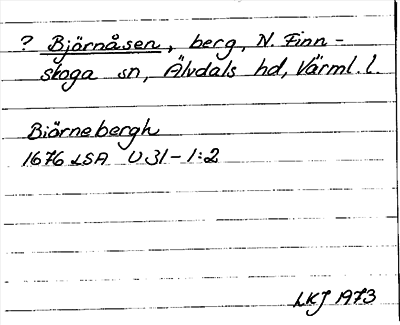 ? Björnåsen, berg, N. Finn-
skoga sn, Älvdals hd, Värml. l.
Biörnebergh
1676 LSA U 31-1:2
LKJ 1973